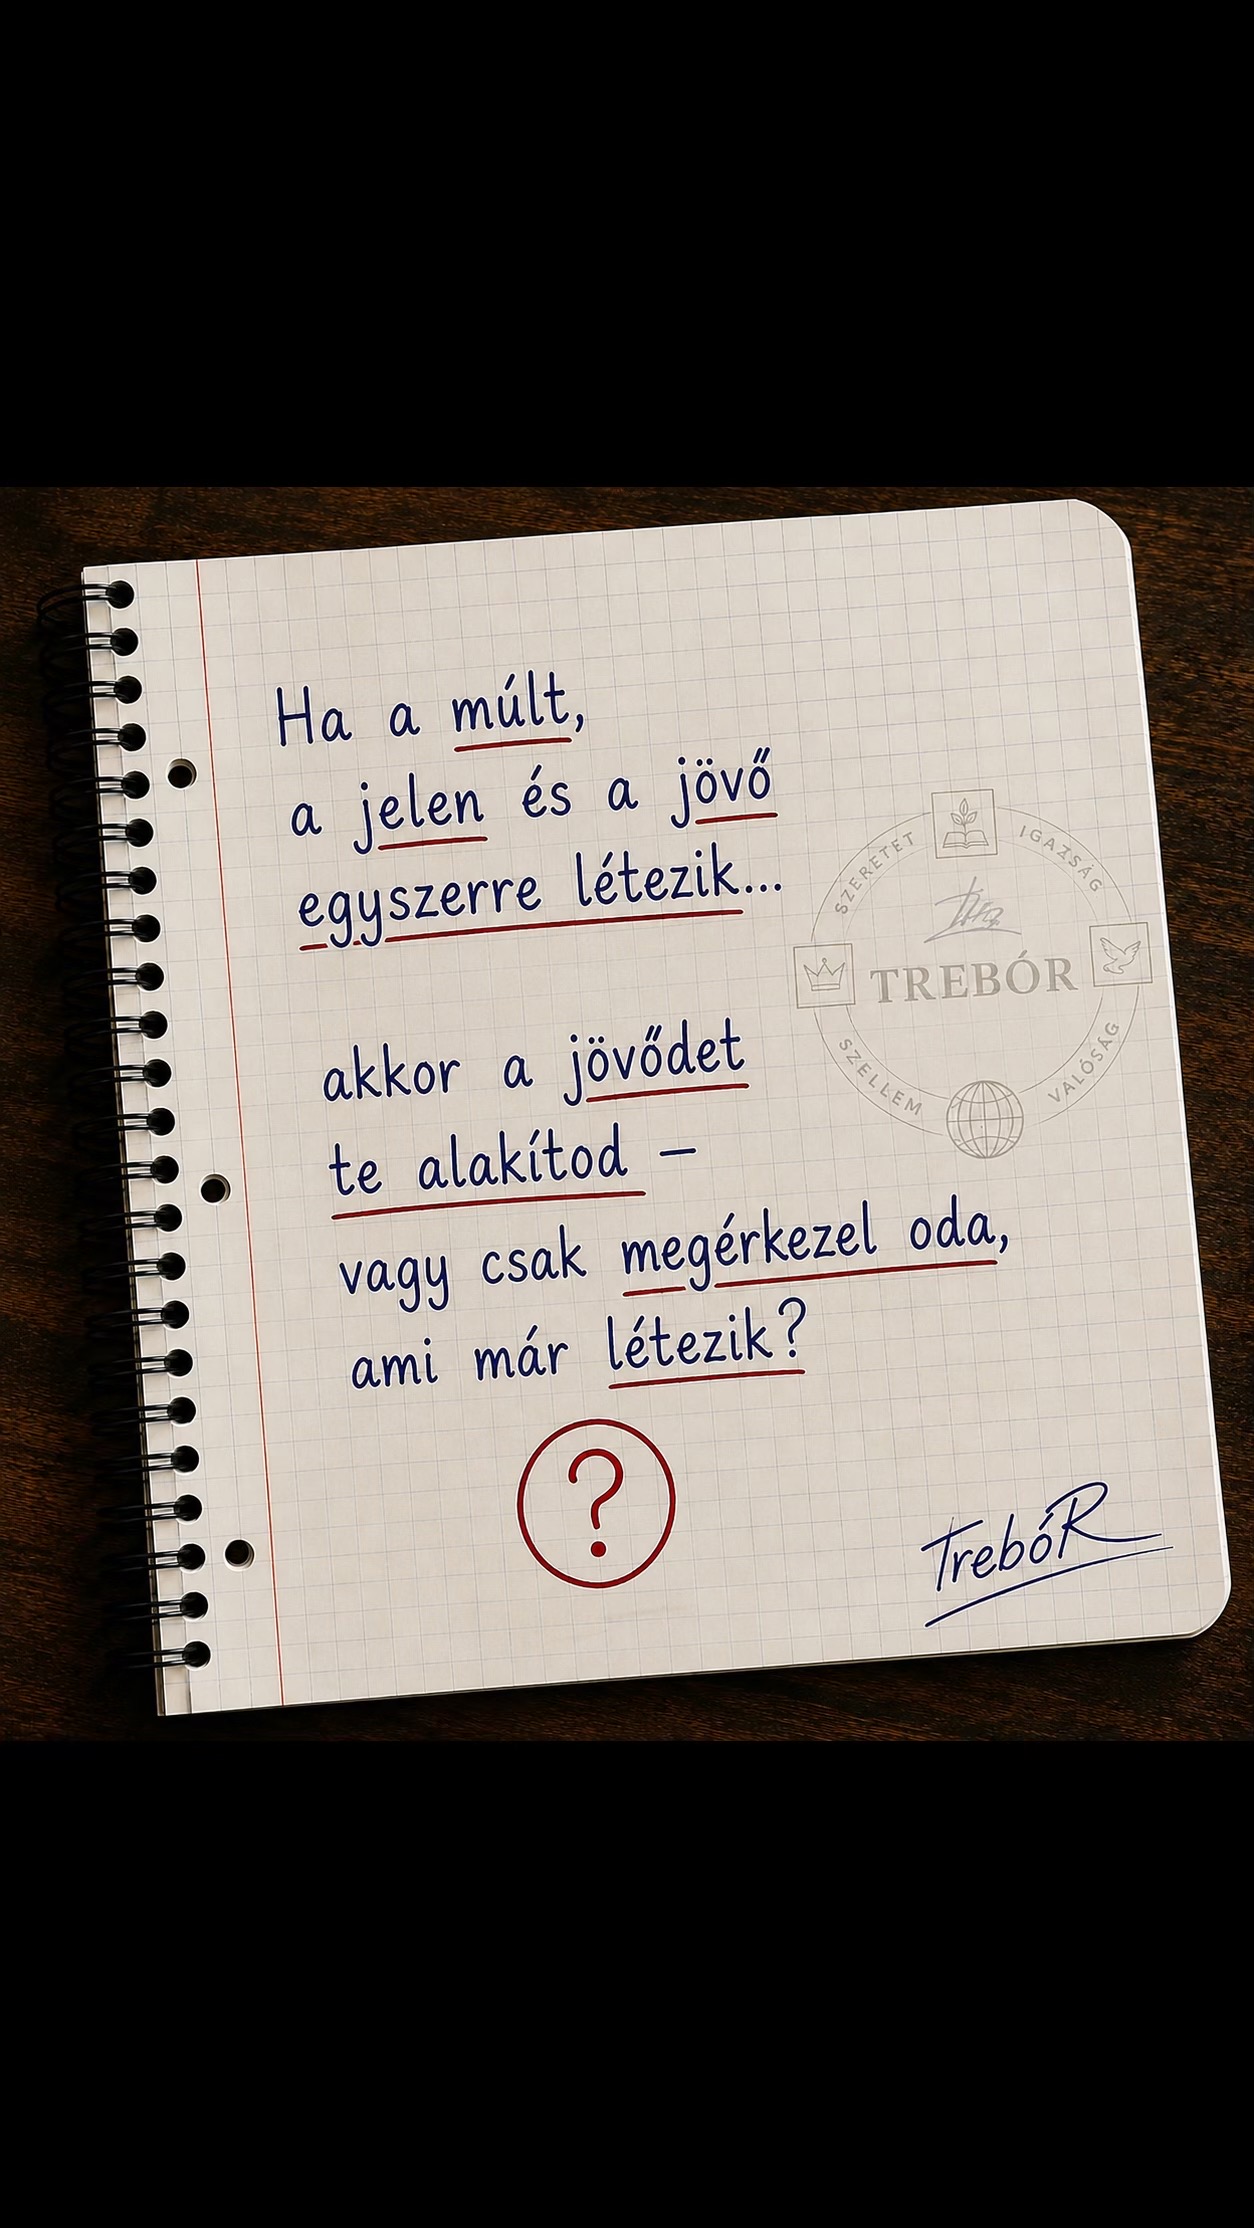 Ha a múlt,
a jelen és a jövő
egyszerre létezik...
akkor a jövődet
te alakítod –
vagy csak megérkezel oda,
ami már létezik?
?
TrebóR
SZERETET
IGAZSÁG
TREBÓR
SZELLEM
VALÓSÁG